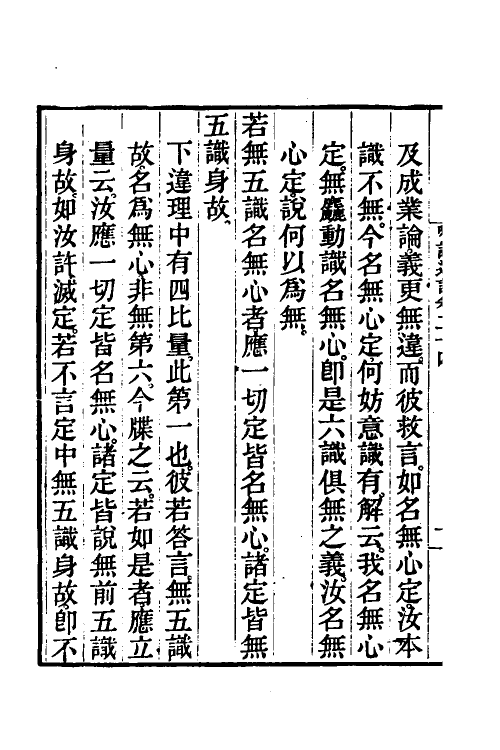 及成業論。義更無違。而彼救言。如名無心定。汝本
識不無。今名無心定。何妨意識有。解云。我名無心
定。無麤動識名無心。卽是六識俱無之義。汝名無
心定。說何以為無。
若無五識名無心者應一切定皆名無心。諸定皆無
五識身故。
下違理中有四比量。此第一也。彼若答言。無五識
故。名為無心。非無第六。今牒之云。若如是者。應立
量云。汝應一切定皆名無心。諸定皆說無前五識
身故。如汝許滅定。若不言定中無五識身故。卽不